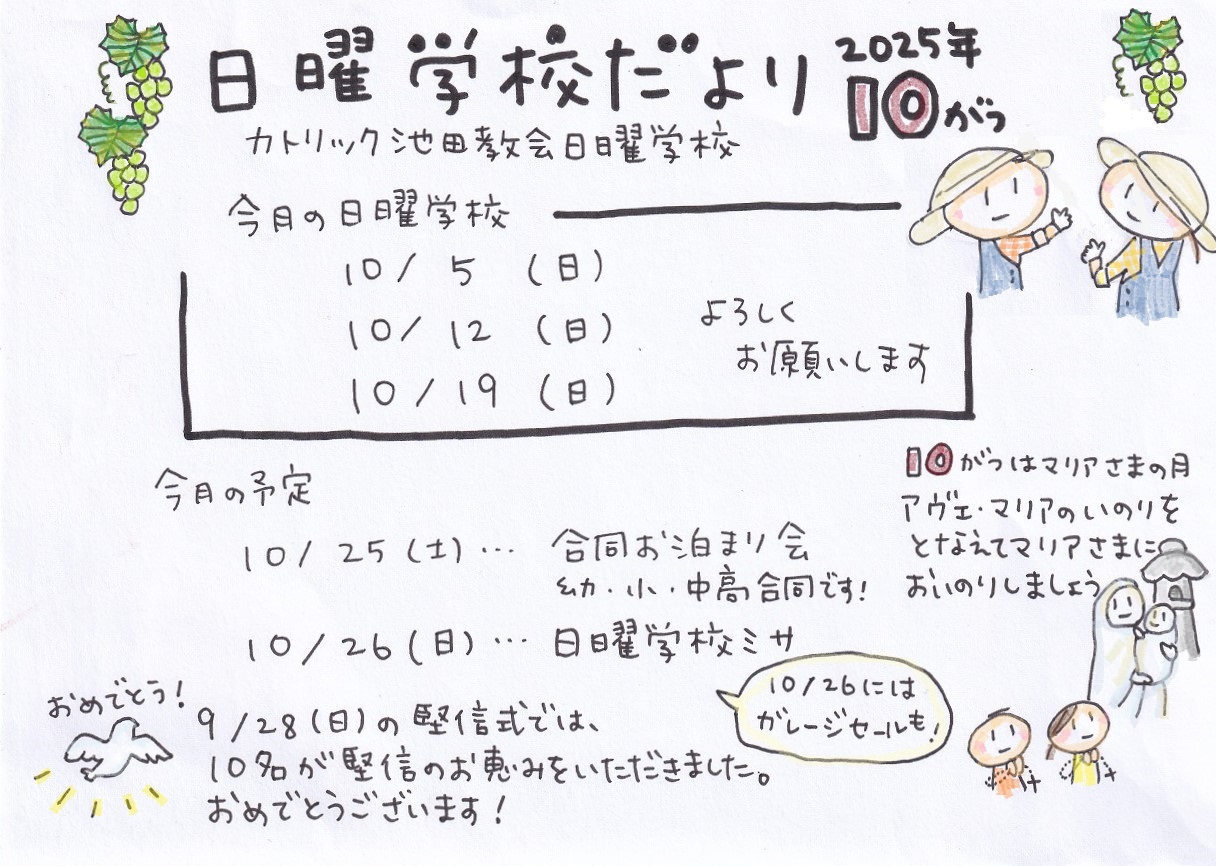 日曜学校だより
2025年
10がつ
カトリック池田教会日曜学校
今月の日曜学校
10/5（日）
10/12（日）
10/19（日）
よろしく
お願いします
今月の予定
10/25（土）… 合同お泊まり会
幼・小・中高合同です!
10/26（日）… 日曜学校ミサ
10/26には
ガレージセールも!
10がつはマリアさまの月
アヴェ・マリアのいのりを
となえてマリアさまに
おいのりしましょう
おめでとう!
9/28（日）の堅信式では、
10名が堅信のお恵みをいただきました。
おめでとうございます!